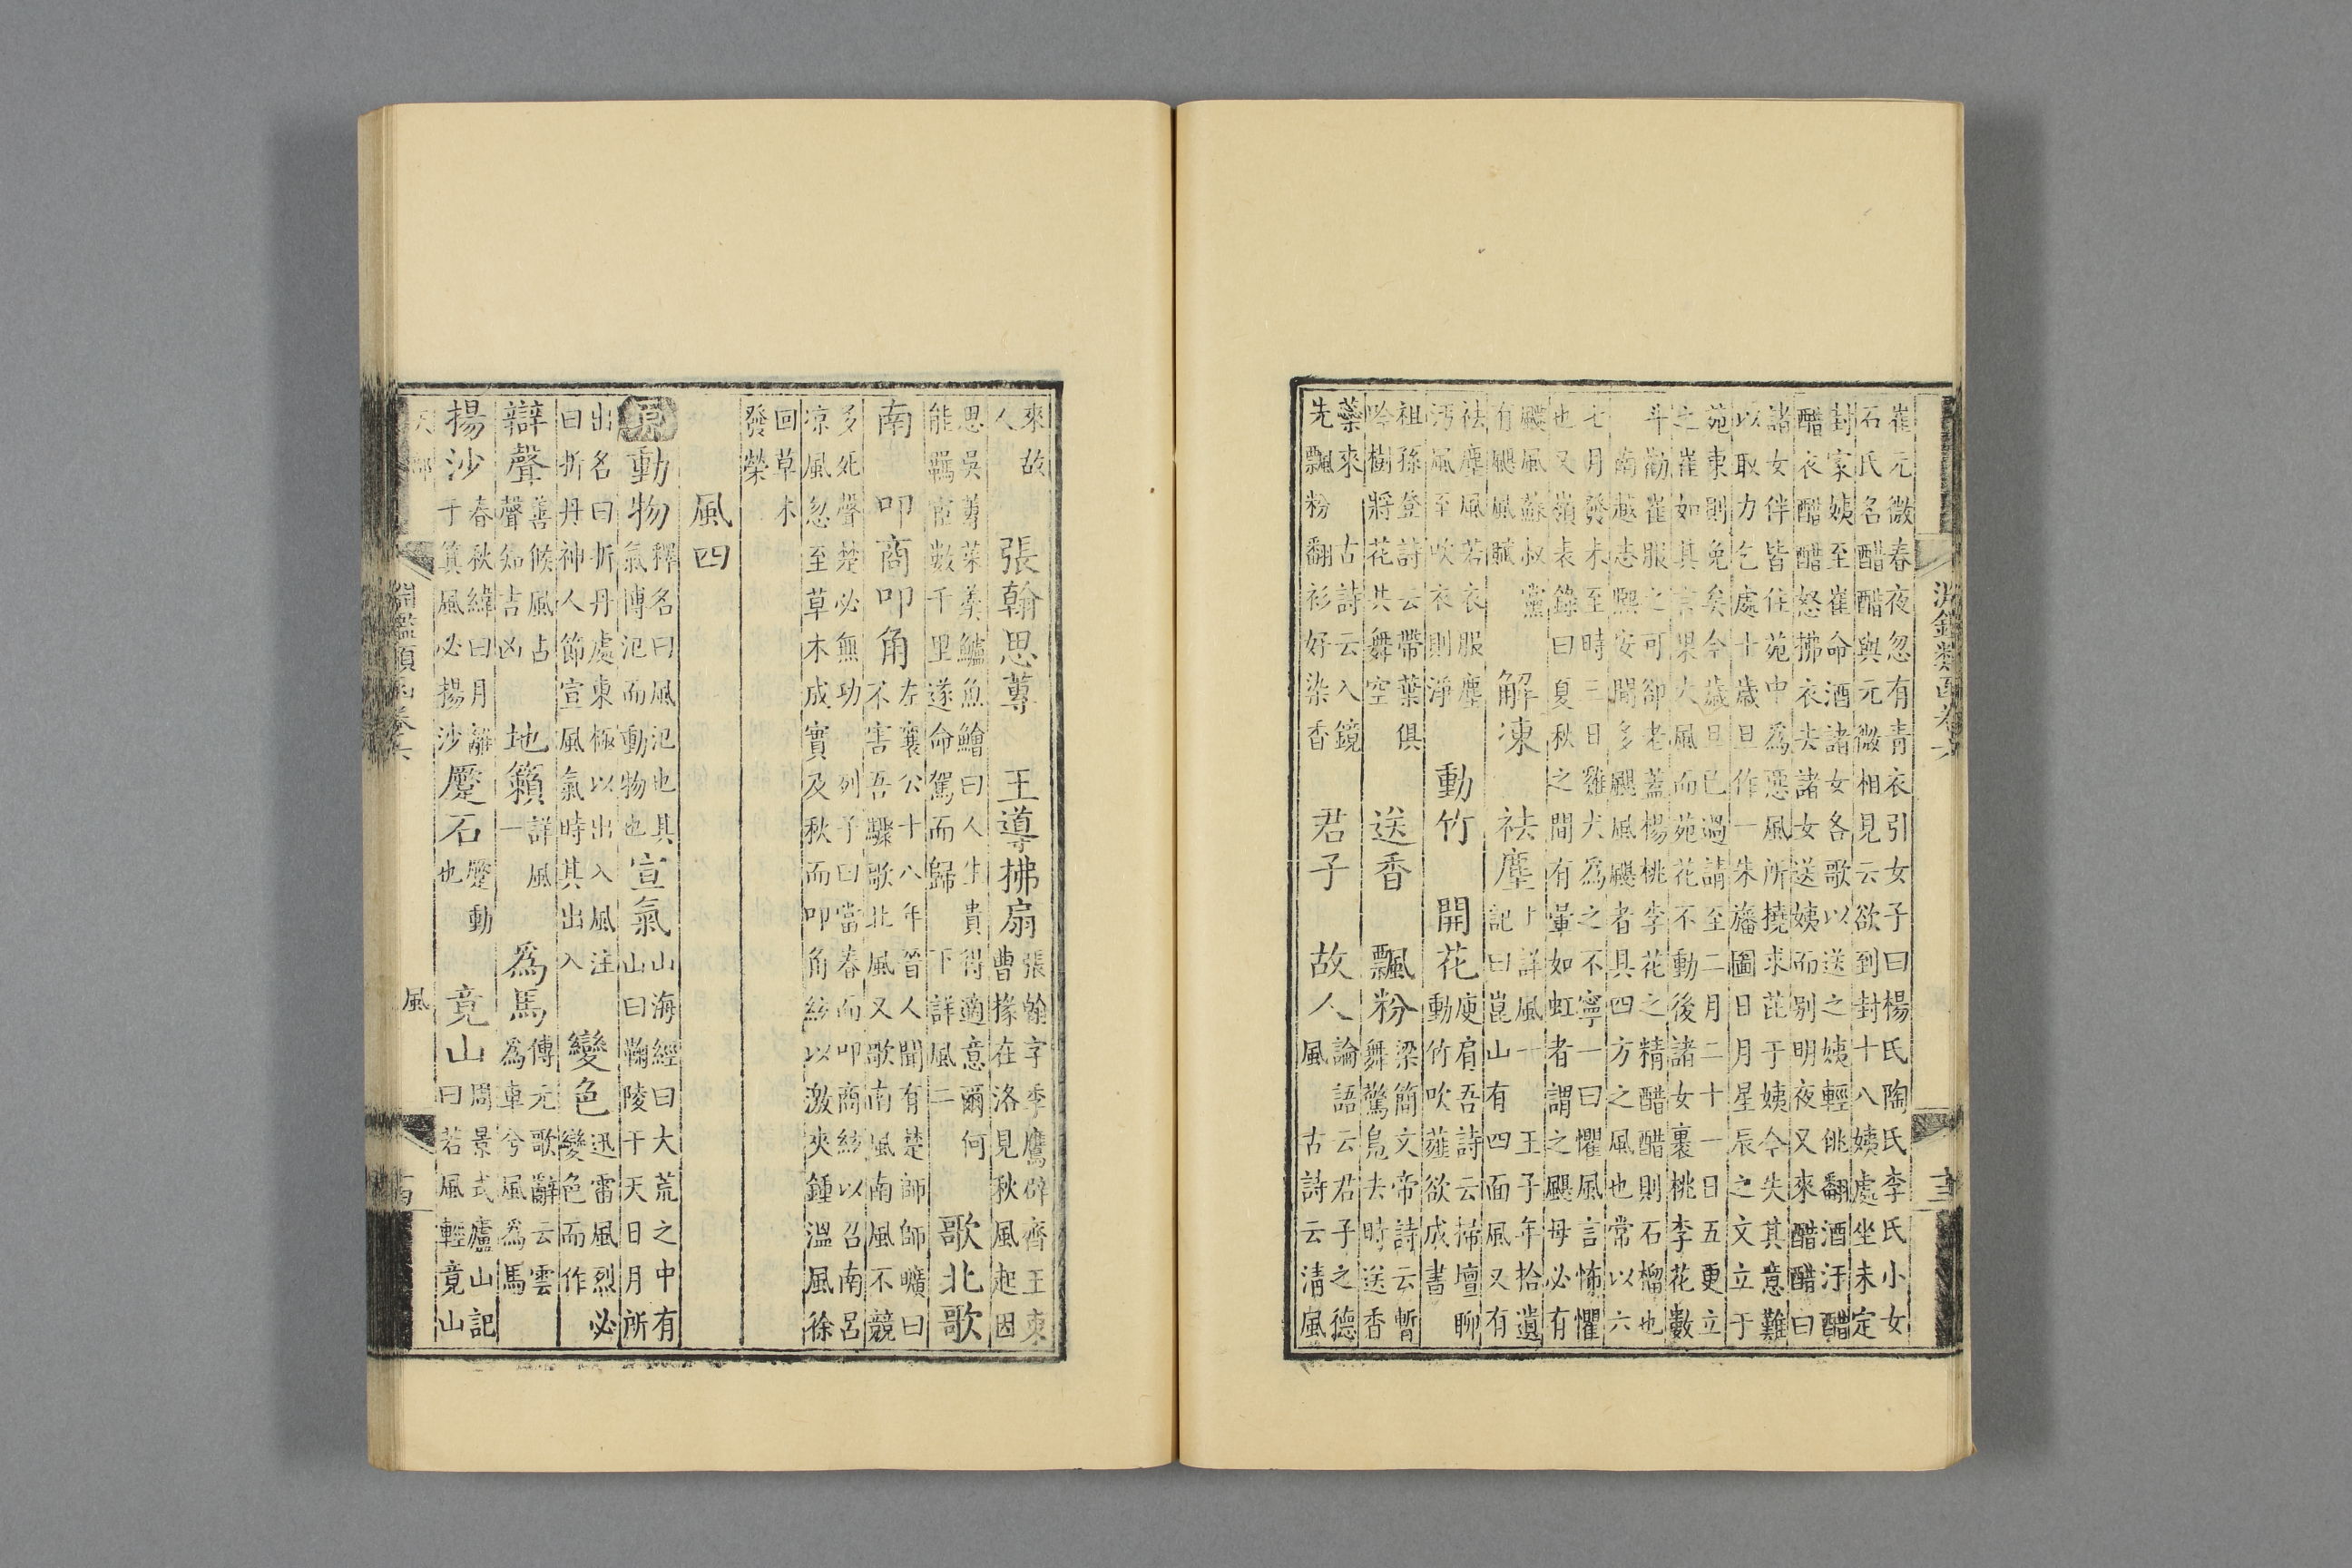 崔元微春夜忽有青衣引女子曰楊氏陶氏李氏小女
石氏名醋醋與元微相見云欲到封十八姨處坐未定
封家姨至崔命酒諸女各歌以送之姨輕佻翻酒汙醋
醋衣醋醋怒拂衣去諸女送姨而别明夜又來醋醋曰
諸女伴皆住苑中為惡風所撓求芘于姨今失其意難
以取力乞處士歲旦作一朱旛圖日月星辰之文立于
苑東則免矣今歲旦已過請至二月二十一日五更立
之崔如其言果大風而苑花不動後諸女裹桃李花數
斗勸崔服之可卻老蓋楊桃李花之精醋醋則石榴也
南越志熙安間多颶風颶者具四方之風也常以六
七月發未至時三日雞犬為之不寧一曰懼風言怖懼
也又嶺表錄曰夏秋之間有暈如虹者謂之颶母必有
颶風 蘇叔黨
有颶風賦
解凍 祛塵
詳風一 王子年拾遺
記曰崑山有四面風又有
祛塵風若衣服塵
汚風至吹衣則淨
動竹 開花
庾肩吾詩云掃壇聊
動竹吹薤欲成書
祖孫登詩云帶葉俱
吟樹將花共舞空
送香 飄粉
梁簡文帝詩云暫
舞驚鳧去時送香
葉來 古詩云入鏡
先飄粉翻衫好染香
君子 故人
論語云君子之德
風 古詩云清風
來故
人
張翰思蓴 王導拂扇
張翰字季鷹辟齊王東
曹掾在洛見秋風起因
思吳蓴菜羹鱸魚鱠曰人生貴得適意爾何
能羈宦數千里遂命駕而歸 下詳風二
歌北歌
南 叩商叩角
左襄公十八年晉人聞有楚師師曠曰
不害吾驟歌北風又歌南風南風不競
多死聲楚必無功 列子曰當春而叩商絃以召南呂
凉風忽至草木成實及秋而叩角絃以激夾鍾溫風徐
回草木
發榮
風四
原動物
釋名曰風氾也其
氣博氾而動物也
宣氣
山海經曰大荒之中有
山曰鞠陵于天日月所
出名曰折丹處東極以出入風注
曰折丹神人節宣風氣時其出入
變色
迅雷風烈必
變色而作
辯聲
善候風占
聲知吉凶
地籟
詳風
一
為馬
傅元歌辭云雲
為車兮風為馬
揚沙
春秋緯曰月離
于箕風必揚沙
蹷石
蹷動
也
竟山
周景式廬山記
曰若風輕竟山
淵鑑類函卷六
十三
淵鑑類函卷六
風